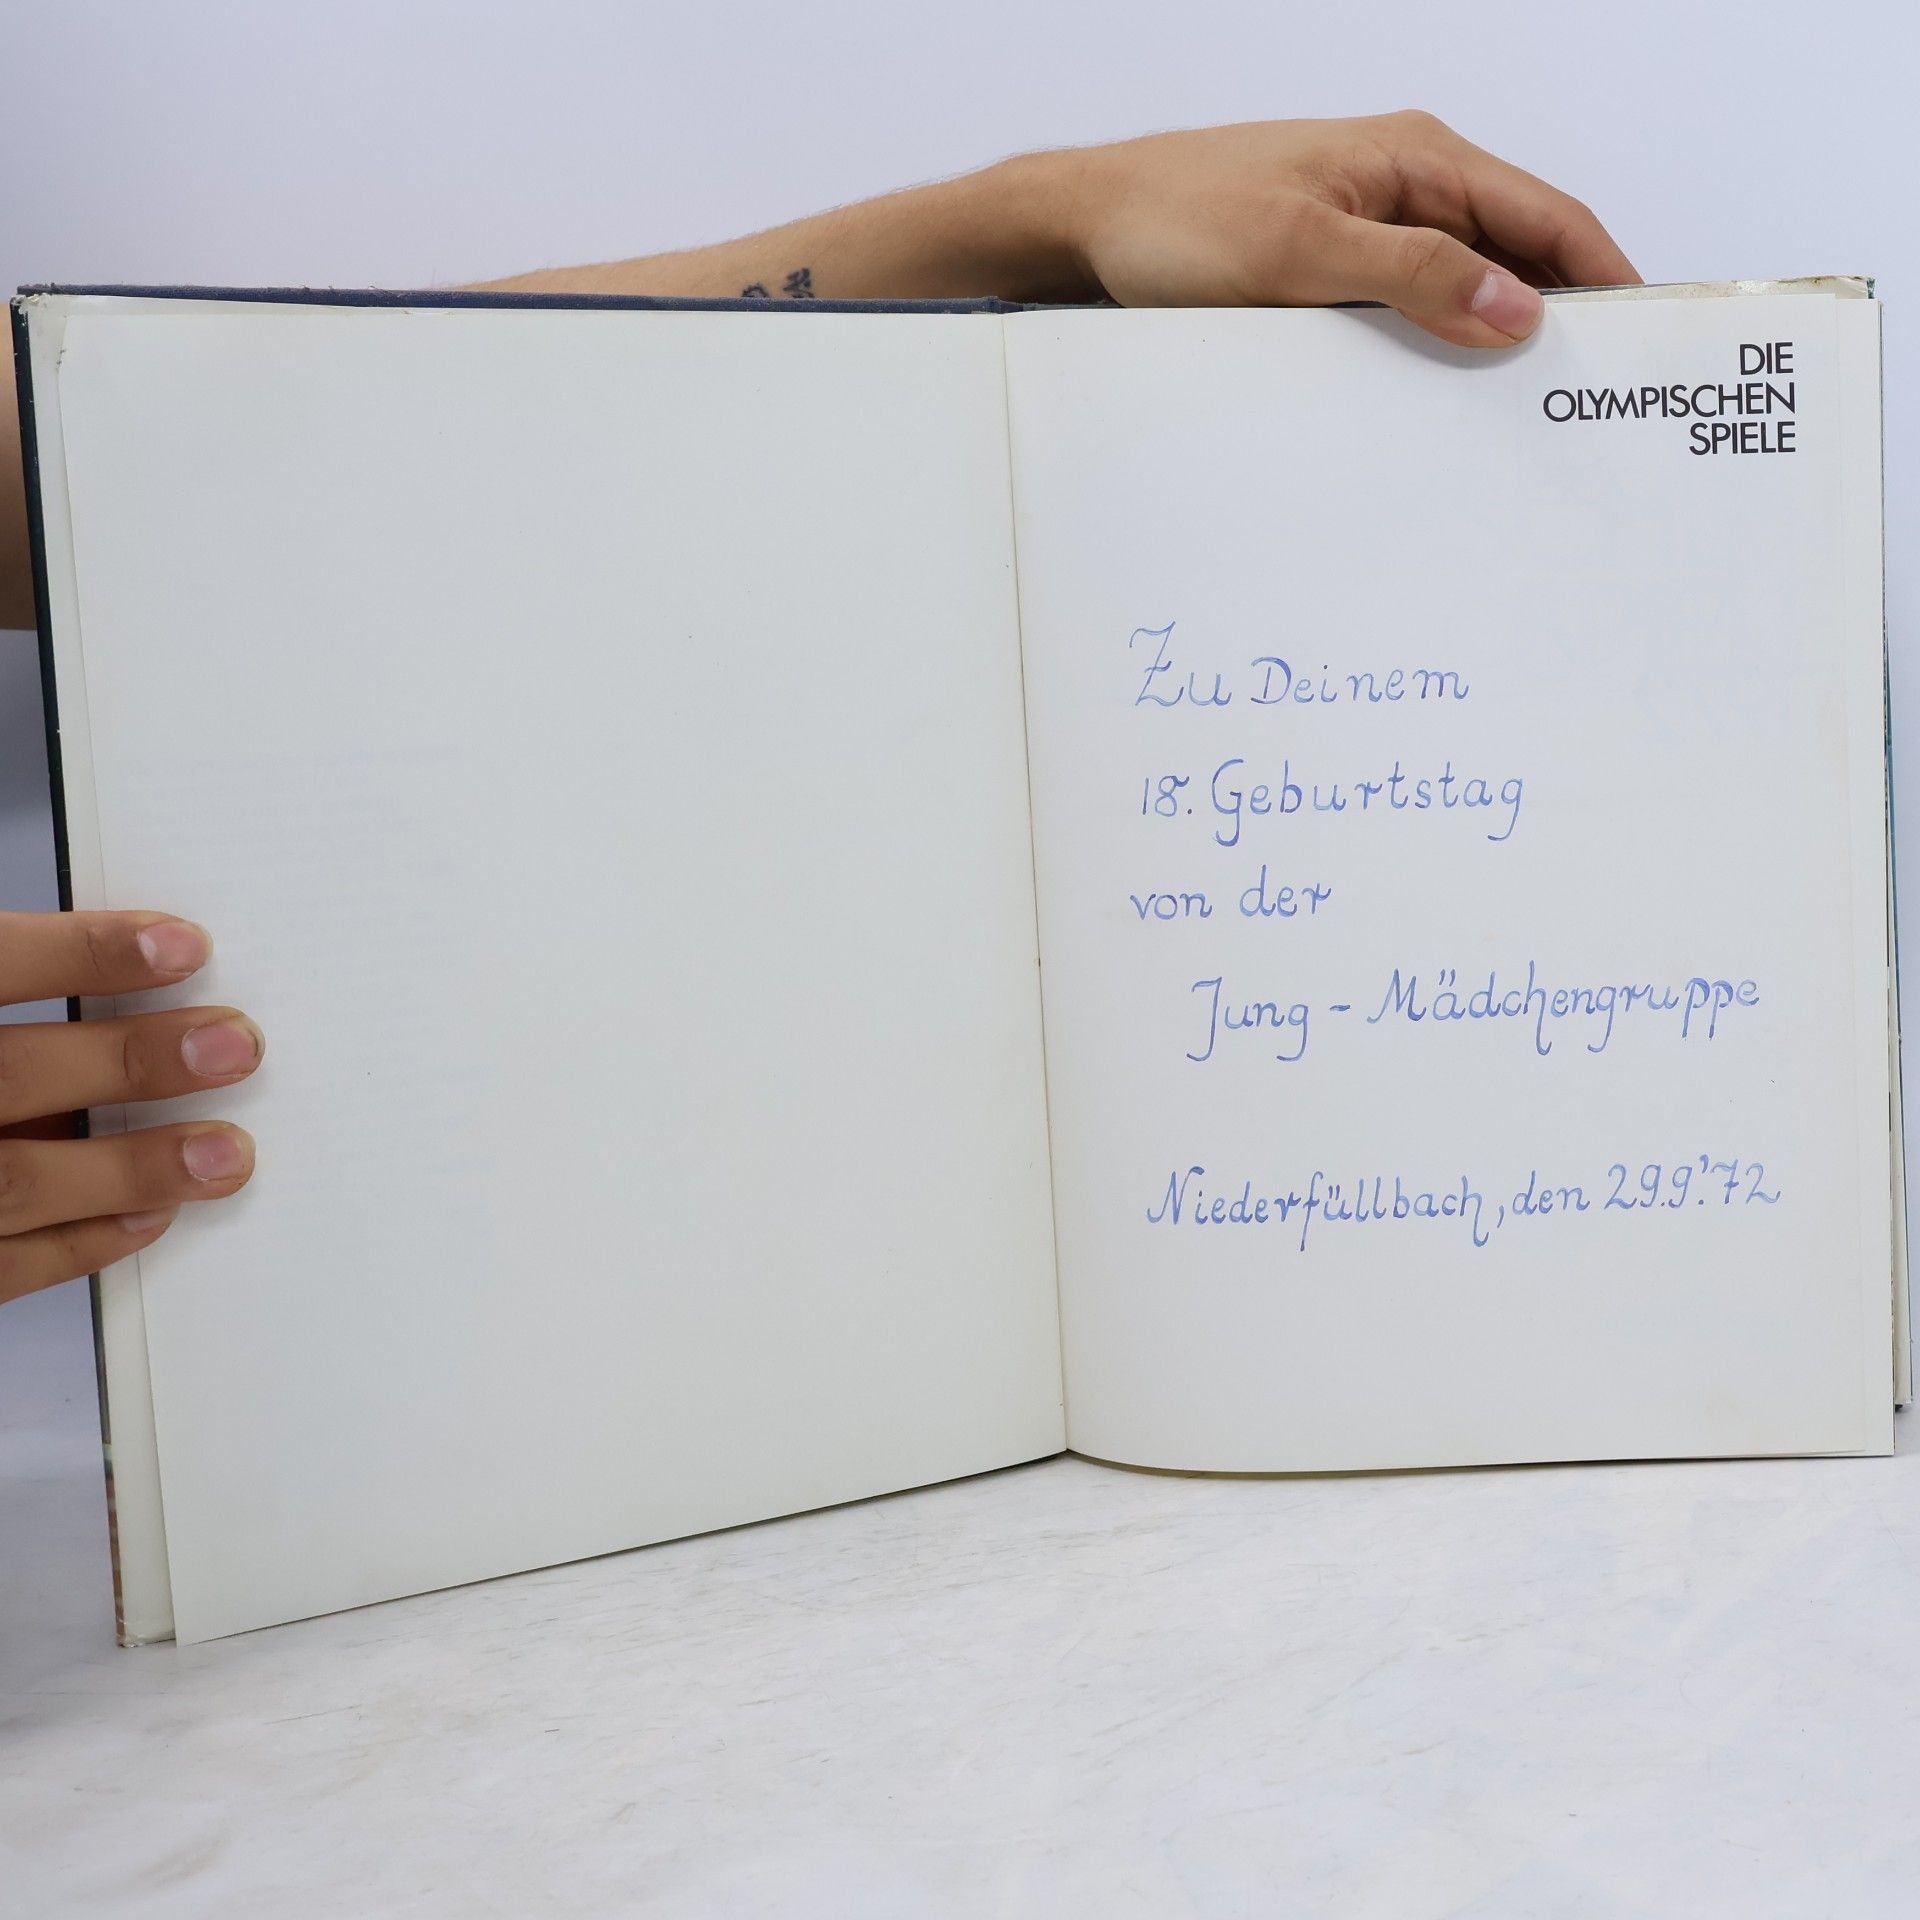 DIE
OLYMPISCHEN
SPIELE
Zu Deinem
18. Geburtstag
von der
Jung - Mädchengruppe
Niederfüllbach, den 29.9.'72